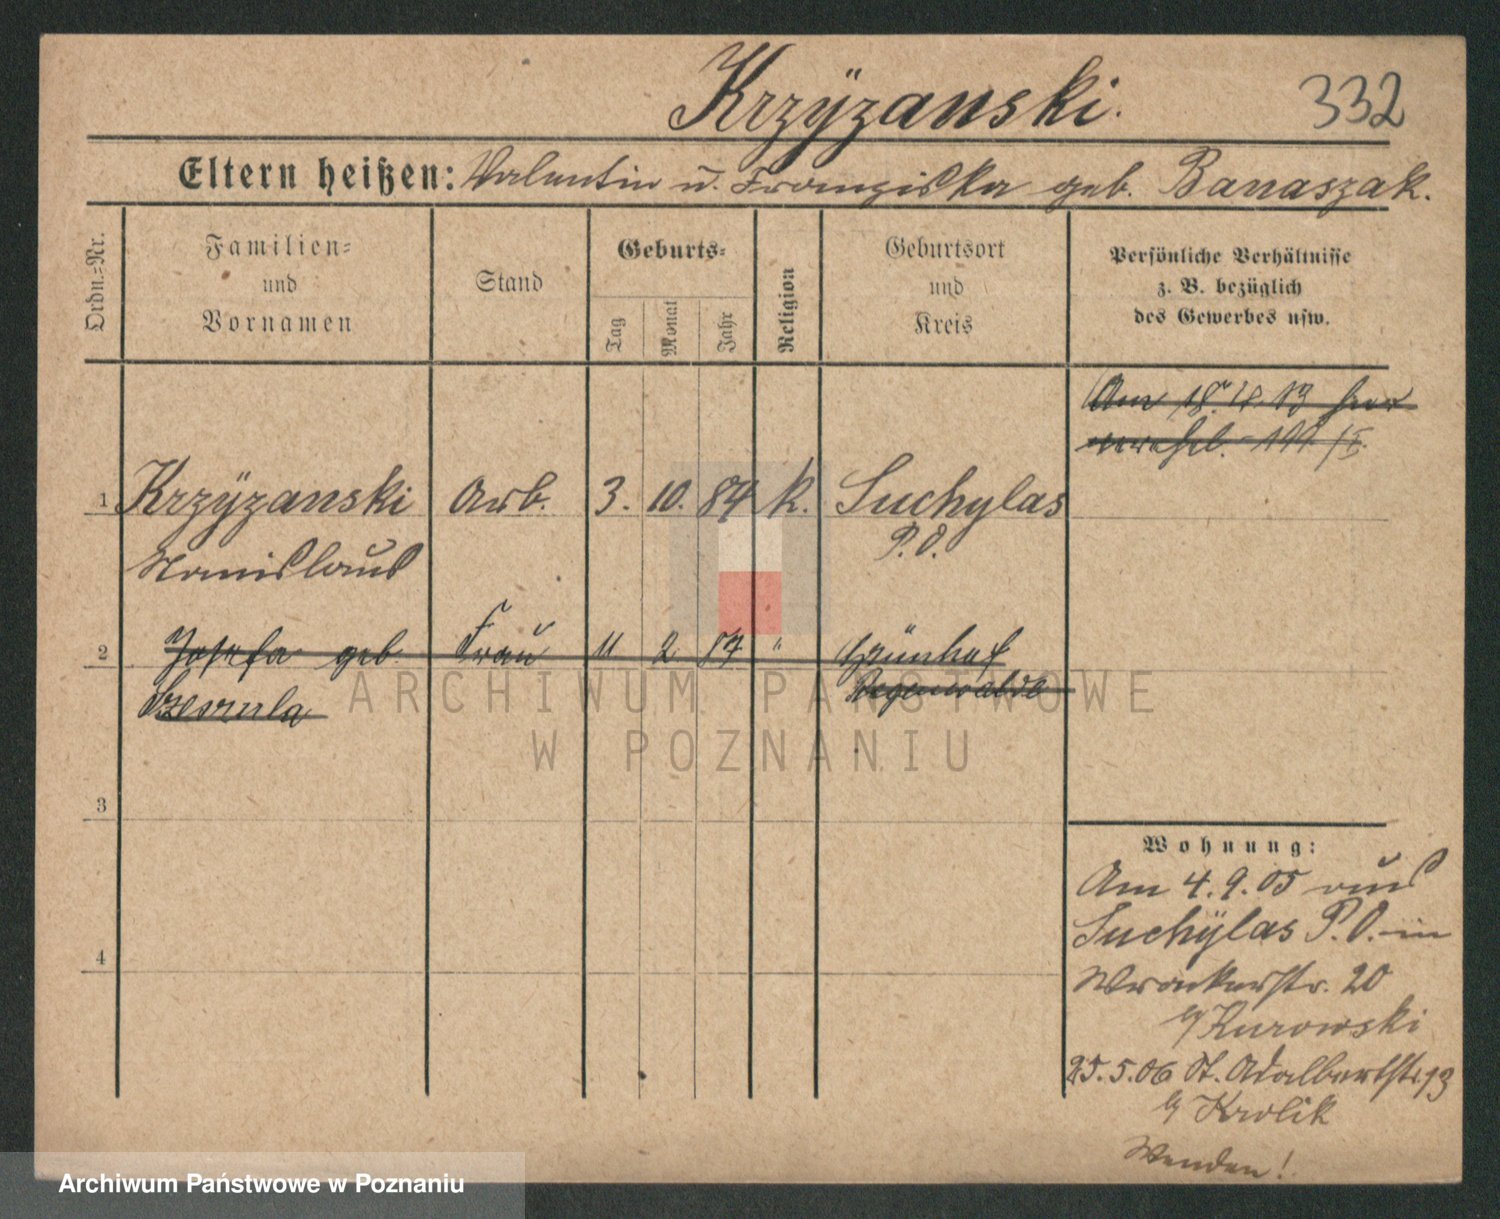 Krzÿzanski.
332
Eltern heißen: Valentin u. Franziska geb. Banaszak.
Ordn.=Nr.
Familien=
und
Vornamen
Stand
Geburts=
Tag
Monat
Jahr
Religion
Geburtsort
und
Kreis
Persönliche Verhältnisse
z. B. bezüglich
des Gewerbes usw.
Am 18. 13
1 Krzÿzanski Arb. 3. 10. 84 k. Suchylas
Stanislaus P. O.
2 Josefa geb. Frau 11 2 87 " Grünhof
Regenwalde
3
4
Wohnung:
Am 4. 9. 05 aus
Suchÿlas P. O. in
Wronkerstr. 20
b/ Kurowski
25. 5. 06 St. Adalbertstr. 13
b/ Krolik
Wenden!
ARCHIWUM PAŃSTWOWE
W POZNANIU
Archiwum Państwowe w Poznaniu